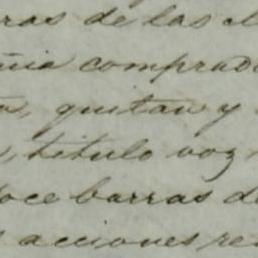 ras de las
comprado
quitan y
titulo voz
oce barras de
acciones re